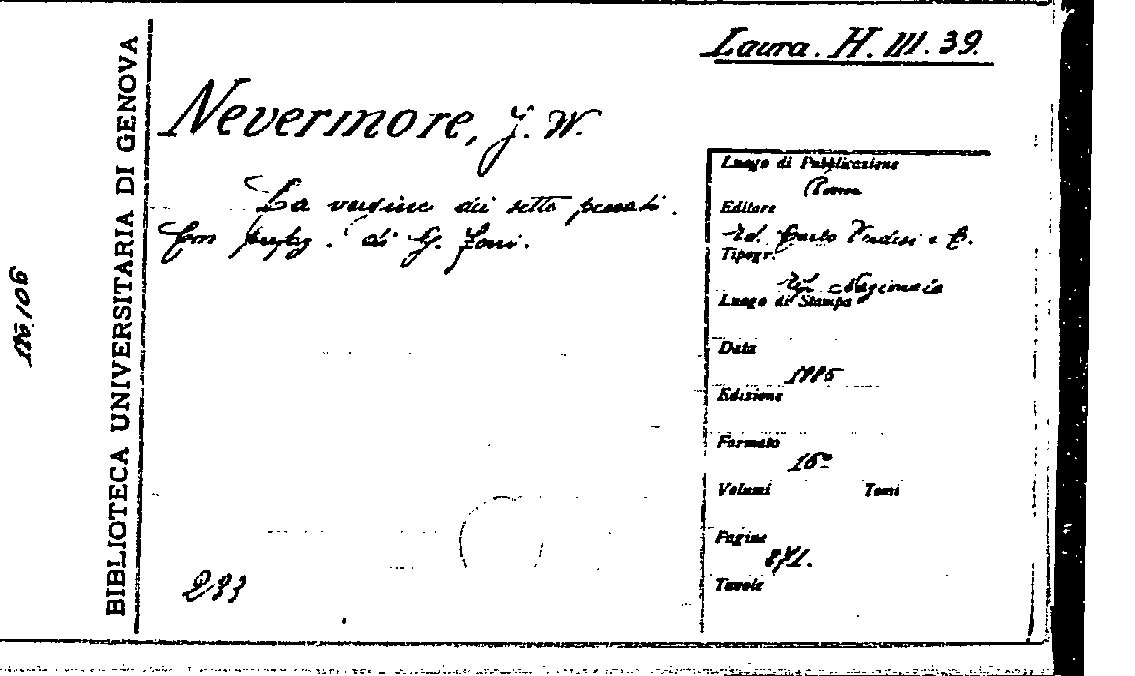 Laura. H. III. 39.
BIBLIOTECA UNIVERSITARIA DI GENOVA
Nevermore, J. W.
La vergine dei sette peccati.
Con prefaz. di G.
Luogo di Pubblicazione
Roma
Editore
Ed. Carlo e C.
Tipogr.
Tip. Nazionale
Luogo di Stampa
Data
Edizione
Formato
16°
Volumi Tomi
Pagine
871.
Tavole
233